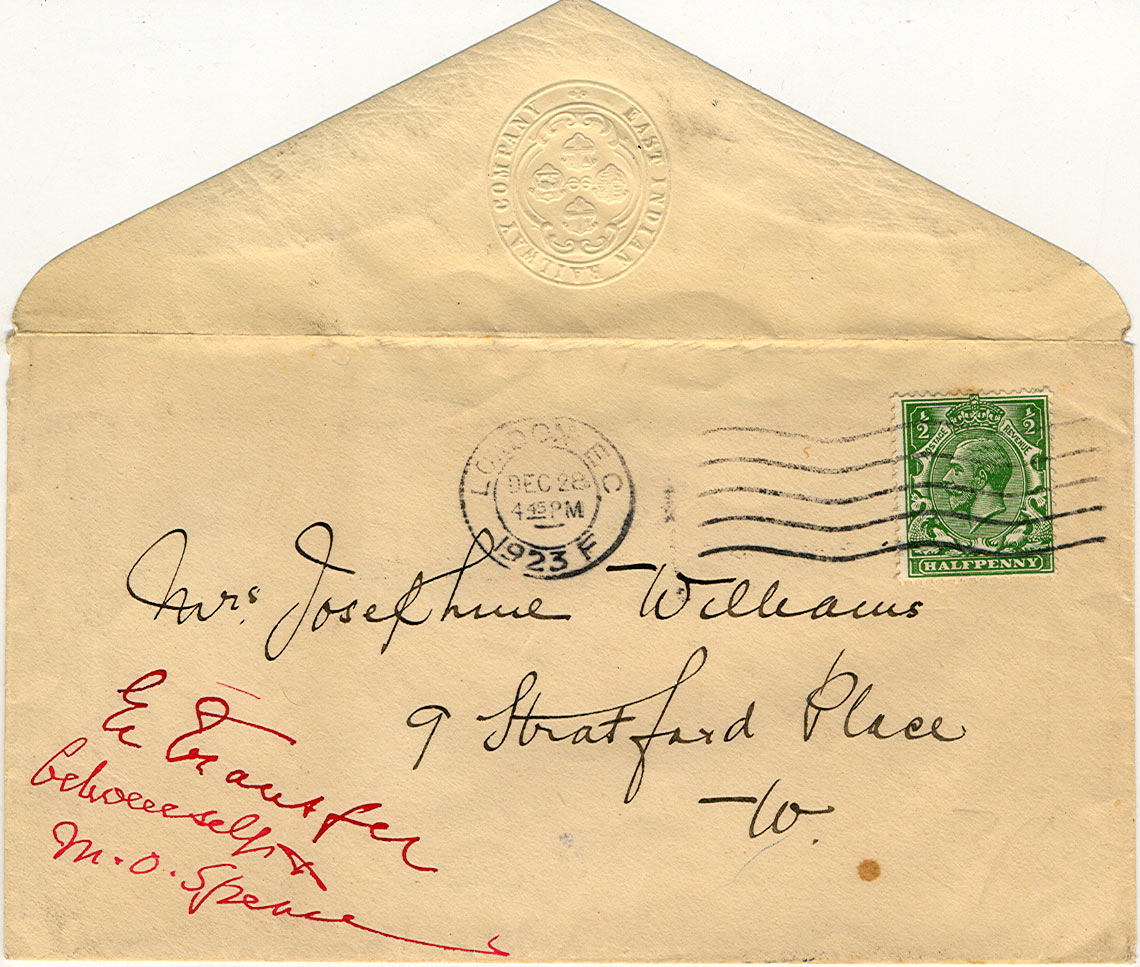 EAST INDIAN RAILWAY COMPANY
LONDON. E.C
DEC 28
4.45 PM
1923 F
½ ½
POSTAGE REVENUE
HALFPENNY
Mrs. Josephine Williams
9 Stratford Place
W.
Transfer
self &
M.O. Spence